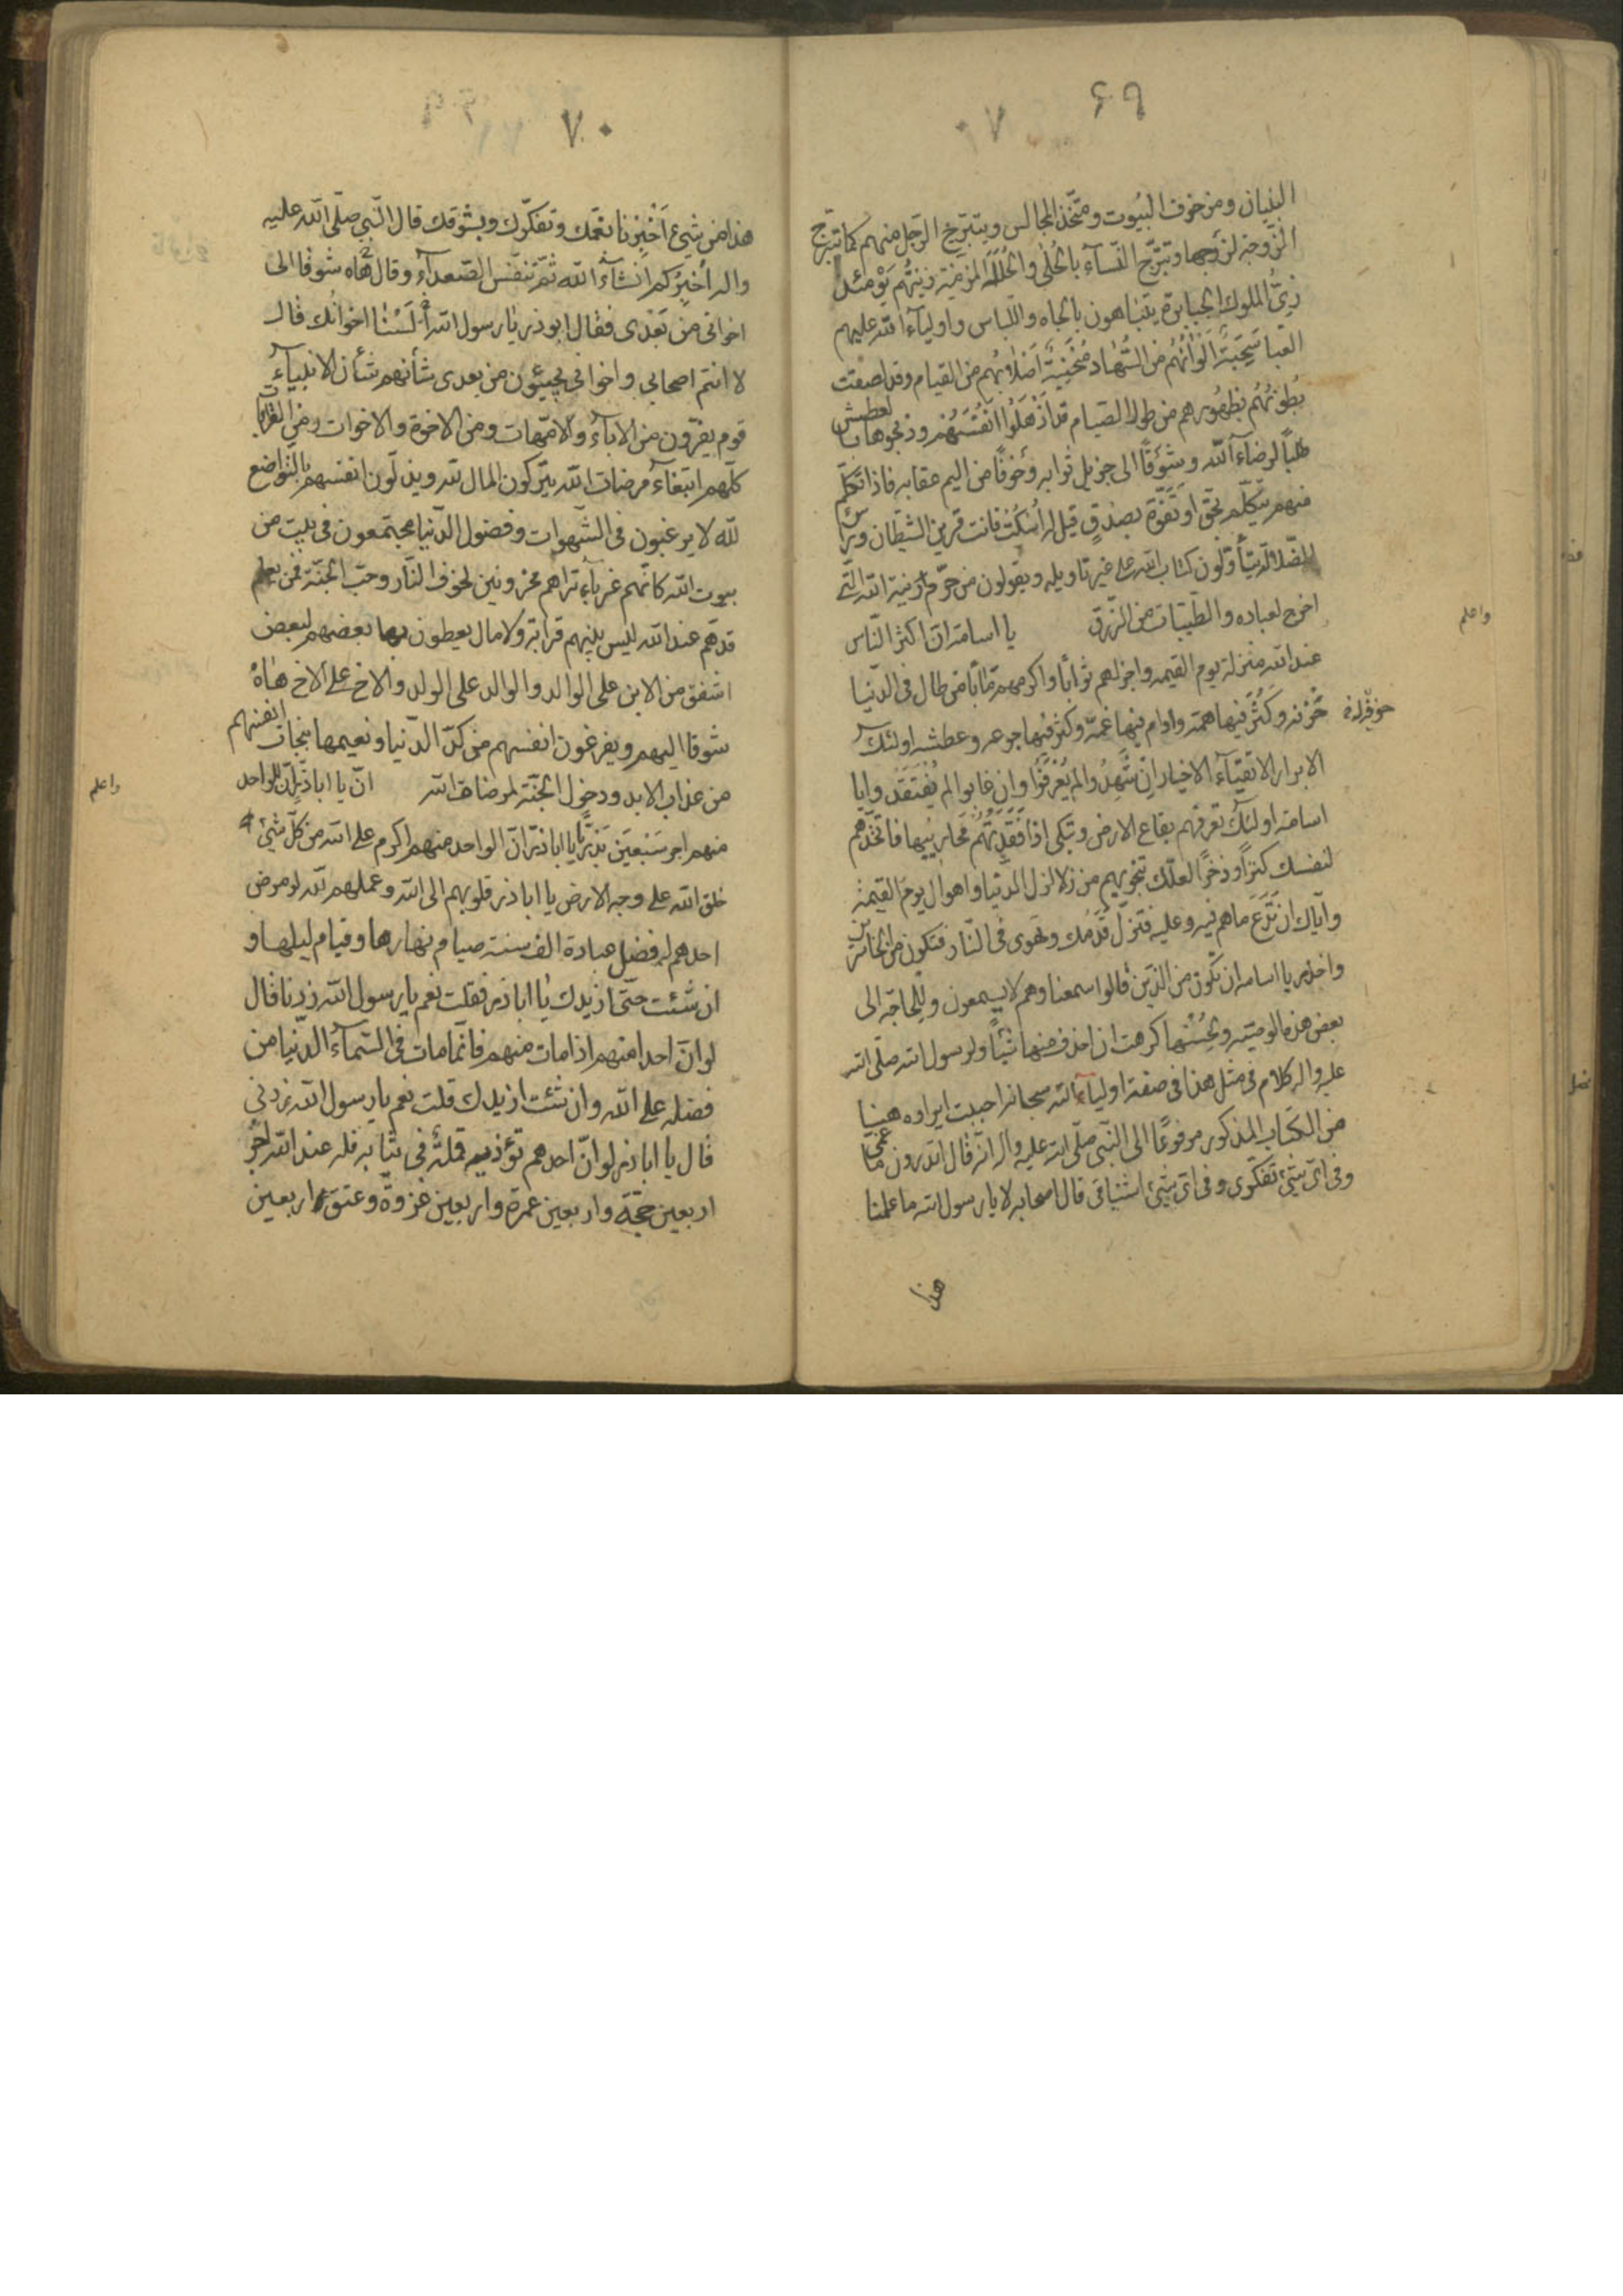 ٦٩
البنيان وزخرف البيوت ومتّخذ المجالس ويتبرّج الرّجل منهم كما تتبرّج
الزّوجة لزوجها وتتبرّج النّسآء بالحُلى والحُلَل المزيّنة زينتهم يومئذ
زيّ الملوك الجبابرة يتباهون بالجاه واللّباس واوليآء الله عليهم
العبا شَحِبَة اَلْوانهُم من السُّهاد مُنْحَنِيَة اَصْلابُهم من القيام وقد لصقت
بُطونُهُم بظهورهم من طول الصّيام قد اَذْهَلُوا انفُسَهُم وذبحوها بالعطش
طلباً لرضآء الله وشوقاً الى جزيل ثوابه وخوفاً من اليم عقابه فاذا تكلّم
منهم متكلّم بحقّ او تَفَوَّهَ بصِدْقٍ قيل له اُسْكُتْ فانت قرين الشيطان وراس
الضّلالة يتأوّلون كتاب الله على غير تاويله ويقولون من حرّم زينة الله الّتى
اخرج لعباده والطّيّبات من الرّزق يا اسامة انّ اكثر النّاس
عند الله منزلة يوم القيمة واجزلهم ثواباً واكرمهم مآباً من طال فى الدّنيا
حُزْنه وكَثُرَ فيها همّه ودام فيها غمّه وكثر فيها جوعه وعطشه اولئك
الابرار الاتقيآء الاخيار ان شهدوا لم يُعْرَفُوا وان غابوا لم يُفْتَقَدُوا يا
اسامة اولئك تعرفهم بقاع الارض وتبكى اذا فَقَدَتْهُم مَحاريبها فاتّخذهم
لنفسك كنزاً وذخراً لعلّك تنجو بهم من زلازل الدّنيا واهوال يوم القيمة
وايّاك ان تَدَعَ ما هم فيه وعليه فتزلّ قَدَمُك وتهوى فى النّار فتكون من الخاسرين
واحذر يا اسامة ان تكون من الّذين قالوا سمعنا وهم لا يسمعون وللحاجة الى
بعض هذه الوصيّة ولحُسْنها كرهت ان احذف منها شيئاً ولرسول الله صلّى الله
عليه واله كلام فى مثل هذا فى صفة اوليآء الله سبحانه احببت ايراده هيهنا
من الكتاب المذكور مرفوعاً الى النّبى صلّى الله عليه واله انّه قال اتدرون ما غمّى
وفى اىّ شىء تفكّرى وفى اىّ شىء اشتياقى قال اصحابه لا يا رسول الله ما علمنا
هذا
واعلم
٧٠
هذا من شىء اَخْبِرْنا بغمّك وتفكّرك وبشوقك قال النّبى صلّى الله عليه
واله اُخْبِرُكم انشآء الله ثمّ تنفّس الصّعدآء وقال هاه شوقا الى
اخوانى من بَعْدى فقال ابوذر يا رسول الله اَلَسْنا اخوانك قال
لا انتم اصحابى واخوانى يجيئون من بعدى شأنهم شأن الانبيآء
قوم يفرّون من الآبآء والامّهات ومن الاخوة والاخوات ومن القرابات
كلّهم ابتغآء مرضات الله يتركون المال لله ويذلّون انفسهم بالتواضع
لله لا يرغبون فى الشّهوات وفضول الدّنيا مجتمعون فى بيت من
بيوت الله كانّهم غربآء تراهم محزونين لخوف النّار وحبّ الجنّة فمن يعلم
قدرهم عند الله ليس بينهم قرابة ولا مال يعطون بها بعضهم لبعض
اشفق من الابن على الوالد والوالد على الولد والاخ على الاخ هاه
شوقا اليهم ويفرغون انفسهم من كدّ الدّنيا ونعيمها بنجاة انفسهم
من عذاب الابد ودخول الجنّة لمرضات الله انّ يا اباذر انّ للواحد
منهم اجر سَبْعينَ بَدْرِيّا يا اباذر انّ الواحد منهم اكرم على الله من كلّ شىء
خلق الله على وجه الارض يا اباذر قلوبهم الى الله وعملهم لله لو مرض
احدهم له فضل عبادة الف سنة صيام نهارها وقيام ليلها و
ان شئت حتّى ازيدك يا اباذر فقلت نعم يا رسول الله زدنا قال
لو انّ احدا منهم اذا مات منهم فانّما مات فى السّمآء الدّنيا من
فضله على الله وان شئت ازيدك قلت نعم يا رسول الله زدنى
قال يا اباذر لو انّ احدهم تؤذيه قملة فى ثيابه فله عند الله اجر
اربعين حجّة واربعين عمرة واربعين غزوة وعتق اربعين
واعلم